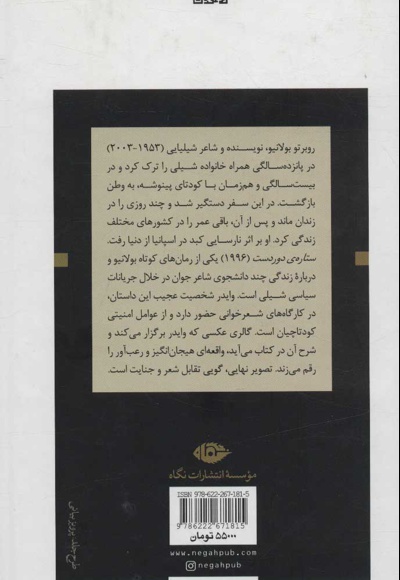 روبرتو بولانیو، نویسنده و شاعر شیلیایی (۱۹۵۳-۲۰۰۳)
در پانزده‌سالگی همراه خانواده شیلی را ترک کرد و در
بیست‌سالگی و هم‌زمان با کودتای پینوشه، به وطن
بازگشت. در این سفر دستگیر شد و چند روزی را در
زندان ماند و پس از آن، باقی عمر را در کشورهای مختلف
زندگی کرد. او بر اثر نارسایی کبد در اسپانیا از دنیا رفت.
ستاره‌ی دوردست (۱۹۹۶) یکی از رمان‌های کوتاه بولانیو و
دربارۀ زندگی چند دانشجوی شاعر جوان در خلال جریانات
سیاسی شیلی است. وایدر شخصیت عجیب این داستان،
در کارگاه‌های شعرخوانی حضور دارد و از عوامل امنیتی
کودتاچیان است. گالری عکسی که وایدر برگزار می‌کند و
شرح آن در کتاب می‌آید، واقعه‌ای هیجان‌انگیز و رعب‌آور را
رقم می‌زند. تصویر نهایی، گویی تقابل شعر و جنایت است.
مؤسسۀ انتشارات نگاه
ISBN 978-622-267-181-5
9 786222 671815
۵۵۰۰۰ تومان
www.negahpub.com
negahpub
طرح جلد: پرویز بیانی